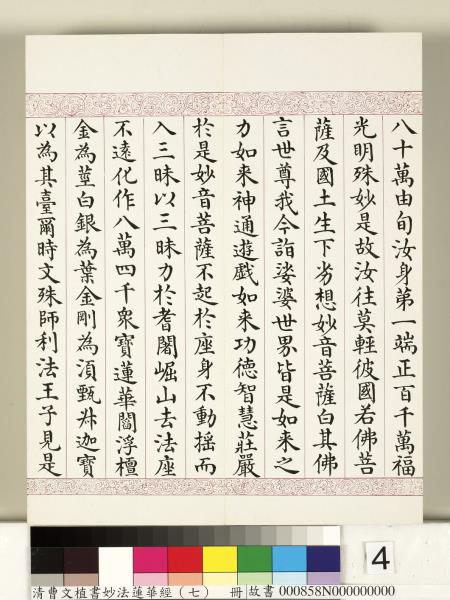 八十萬由旬汝身第一端正百千萬福
光明殊妙是故汝往莫輕彼國若佛菩
薩及國土生下劣想妙音菩薩白其佛
言世尊我今詣娑婆世界皆是如来之
力如来神通遊戲如来功德智慧莊嚴
於是妙音菩薩不起於座身不動揺而
入三昧以三昧力於耆闍崛山去法座
不遠化作八萬四千衆寳蓮華閻浮檀
金為莖白銀為葉金剛為湏甄叔迦寳
以為其臺爾時文殊師利法王子見是
4
清曹文植書妙法蓮華經（七） 冊 故書 000858N000000000